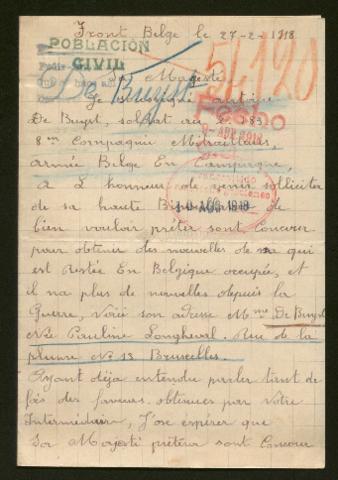 Front Belge le 27-2-1918
POBLACIÓN
CIVIL
54120
De Buyst
Sa Majesté
Je soussigné Antoine
De Buyst, soldat au
8me Compagnie Mitrailleurs,
armée Belge En Campagne,
à L'honneur de venir solliciter
de sa haute de
bien vouloir prêter sont Concour
pour obtenir des nouvelles de ma qui
est Restée En Belgique occupée, et
il na plus de nouvelles depuis la
Guerre, voici son adresse Mme De Buyst
Née Pauline Longheval. Rue de la
plume No 13 Bruxelles.
Ayant déja entendu parler tant de
fois des faveurs obtenues par Votre
Intermédiaire, J'ose espérer que
Sa Majesté prêtera sont Concour
10 AGO 1918